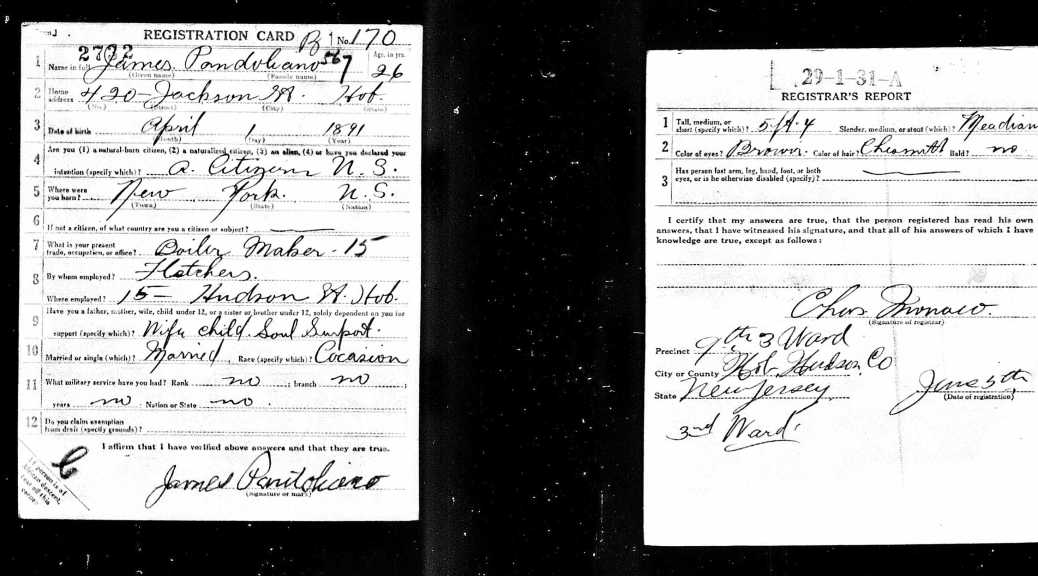 REGISTRATION CARD B 1 No. 170
2702
567
1 Name in full James Pandoliano Age, in yrs. 26
(Given name) (Family name)
2 Home address 420 - Jackson St. Hob.
(No.) (Street) (City) (State)
3 Date of birth April 1 1891
(Month) (Day) (Year)
4 Are you (1) a natural-born citizen, (2) a naturalized citizen, (3) an alien, (4) or have you declared your
intention (specify which)? a. Citizen N. S.
5 Where were you born? New York. N. S.
(Town) (State) (Nation)
6 If not a citizen, of what country are you a citizen or subject?
7 What is your present trade, occupation, or office? Boiler Maker - 15
8 By whom employed? Fletchers.
Where employed? 15 - Hudson St. Hob.
9 Have you a father, mother, wife, child under 12, or a sister or brother under 12, solely dependent on you for
support (specify which)? Wife child. Soul Surpot.
10 Married or single (which)? Married, Race (specify which)? Cocasion
11 What military service have you had? Rank no ; branch no ;
years no ; Nation or State no .
12 Do you claim exemption from draft (specify grounds)?
I affirm that I have verified above answers and that they are true.
James Pantoliano
(Signature or mark)
If person is of
African descent,
tear off this
corner.
29-1-31-A
REGISTRAR'S REPORT
1 Tall, medium, or short (specify which)? 5 ft. 4 Slender, medium, or stout (which)? Meadian
2 Color of eyes? Brown. Color of hair? Chesnutt Bald? no.
3 Has person lost arm, leg, hand, foot, or both
eyes, or is he otherwise disabled (specify)?
I certify that my answers are true, that the person registered has read his own
answers, that I have witnessed his signature, and that all of his answers of which I have
knowledge are true, except as follows:
Chas. Monaco.
(Signature of registrar)
Precinct 9th 3 Ward
City or County Hob. Hudson Co
State New Jersey
June 5th
(Date of registration)
3rd Ward.